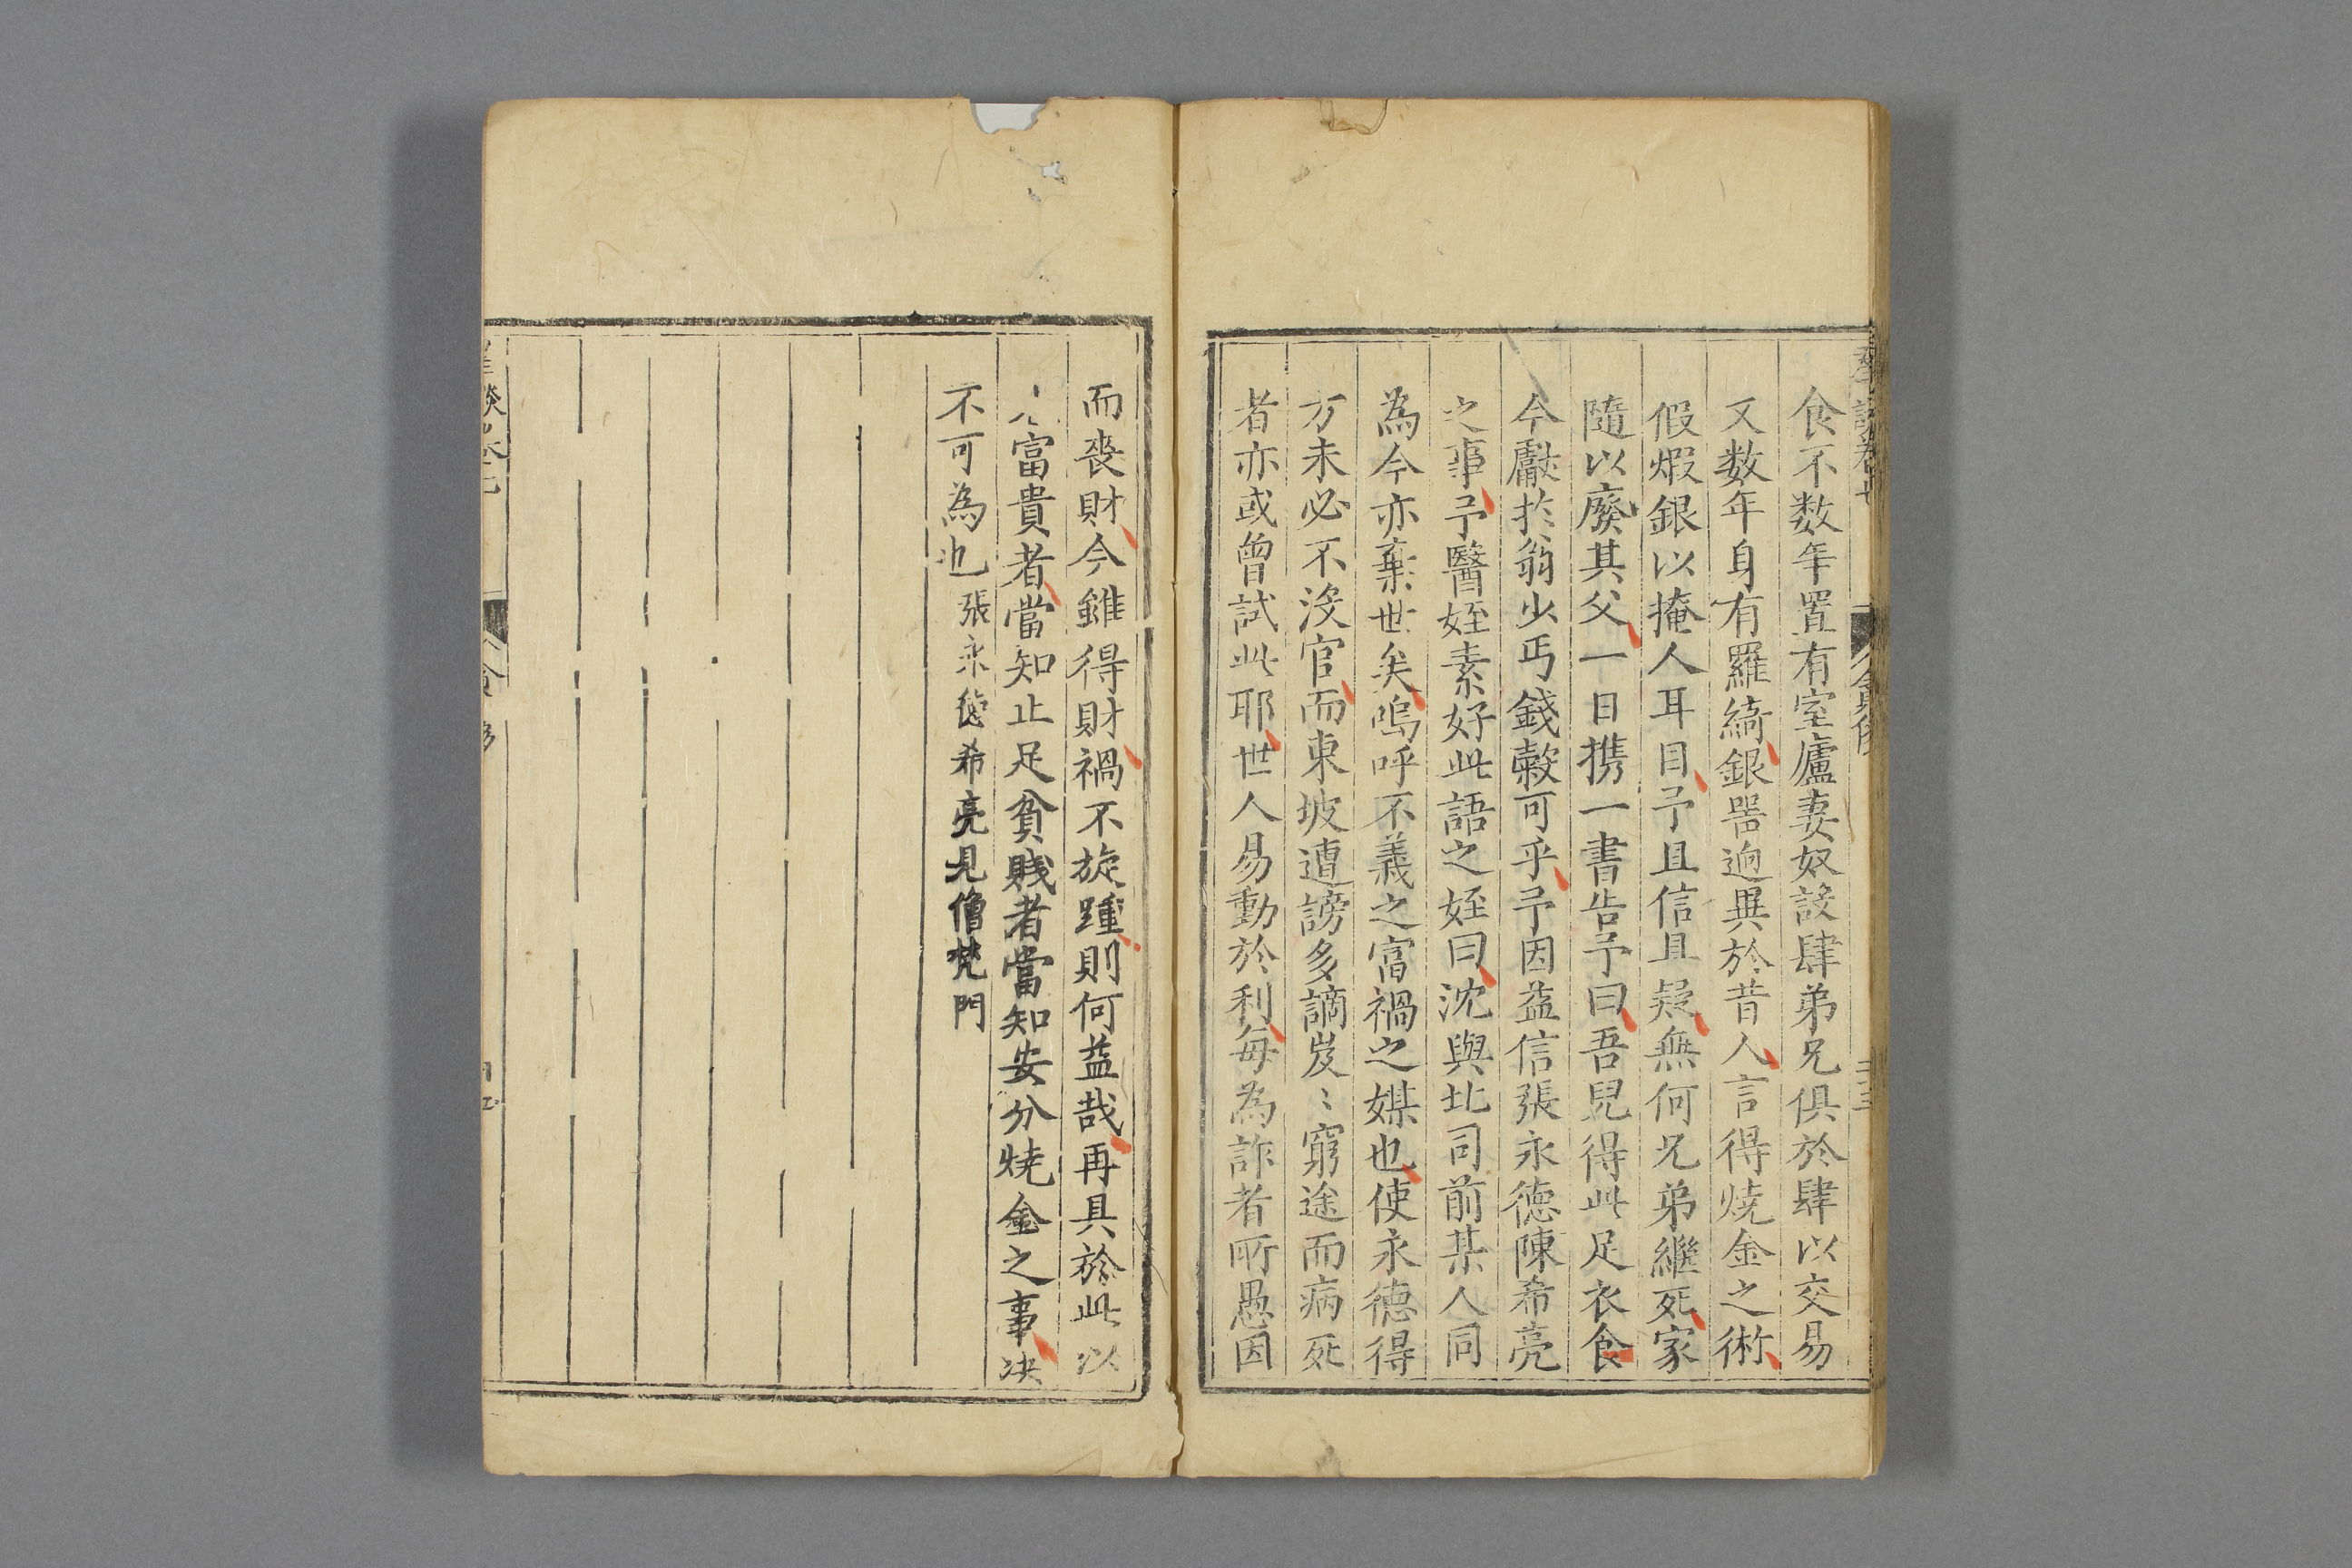 食不数年置有室廬妻奴設肆弟兄俱於肆以交易
又数年身有羅綺銀噐逈異於昔人言得焼金之術
假煆銀以掩人耳目予且信且疑無何兄弟繼死家
隨以廢其父一日携一書告予曰吾兒得此足衣食
今獻扵翁少丐錢穀可乎予因益信張永德陳希亮
之事予醫姪素好此語之姪曰沈與北司前某人同
為今亦棄世矣嗚呼不義之富禍之媒也使永德得
方未必不没官而東坡遭謗多謫岌〻窮途而病死
者亦或曾試此耶世人易動於利每為詐者所愚因
而丧財今雖得財禍不旋踵則何益哉再具於此以
富貴者當知止足貧賤者當知安分焼金之事决
不可為也張永德希亮見僧梵門